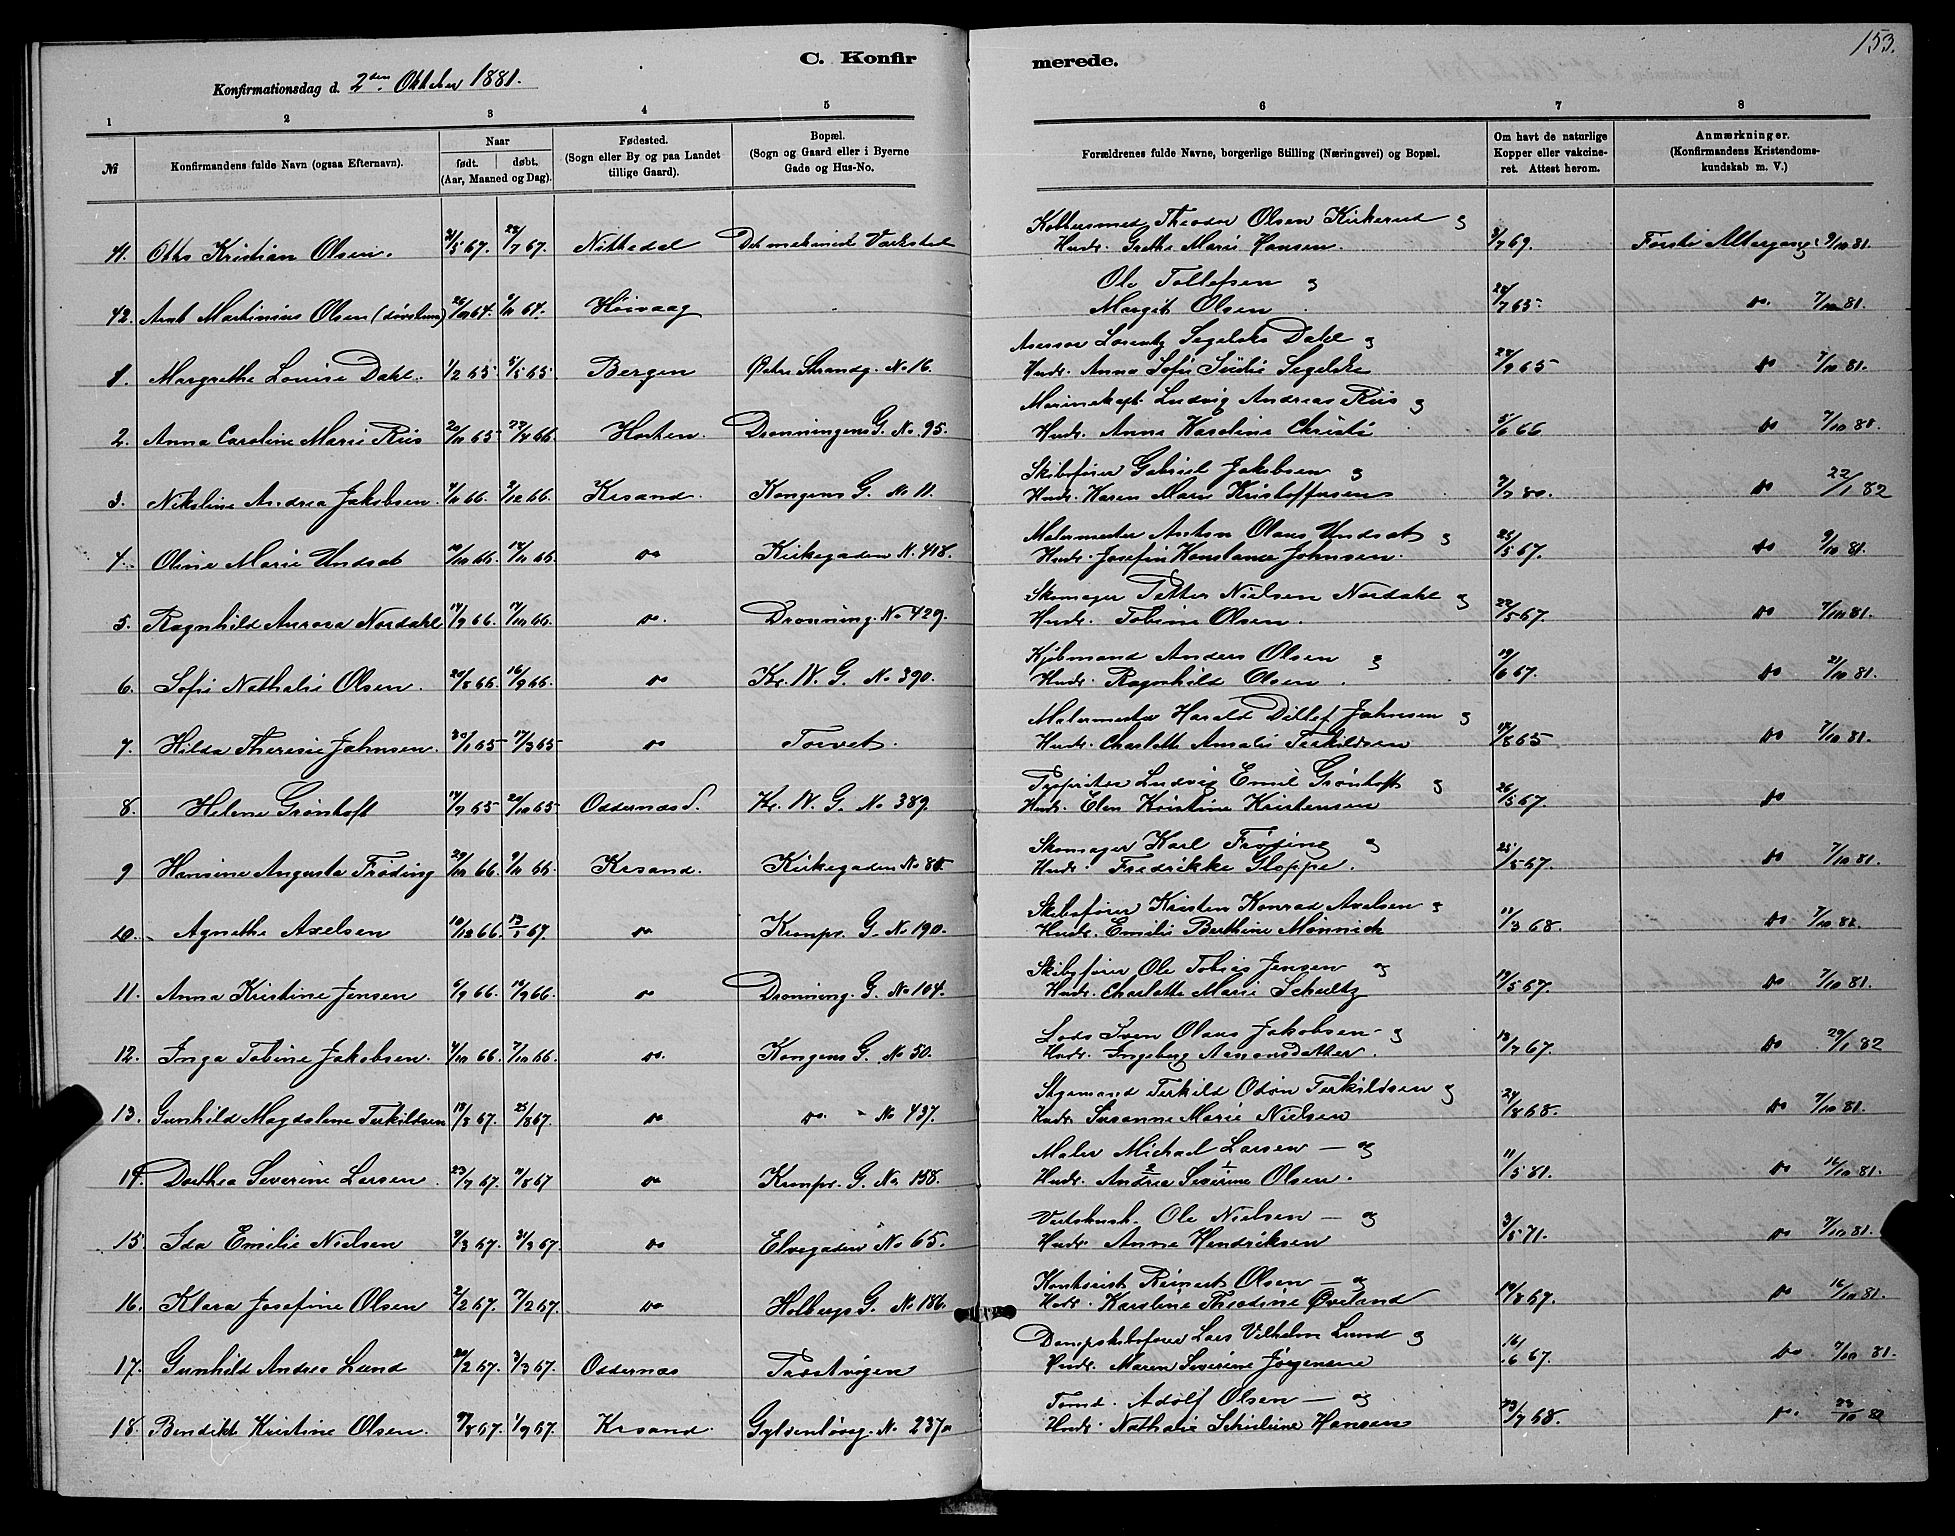 153.
C. Konfirmerede.
Konfirmationsdag d. 2den Oktober 1881.
1 2 3 4 5 6 7 8
№ Konfirmandens fulde Navn (ogsaa Efternavn). Naar født. døbt. (Aar, Maaned og Dag). Fødested. (Sogn eller By og paa Landet tillige Gaard). Bopæl. (Sogn og Gaard eller i Byerne Gade og Hus-No. Forældrenes fulde Navne, borgerlige Stilling (Næringsvei) og Bopæl. Om havt de naturlige Kopper eller vakcineret. Attest herom. Anmærkninger. (Konfirmandens Kristendomskundskab m. V.)
41. Otto Kristian Olsen. 67. 28/7 67. Nittedal Det mekanisk Værksted Kobbersmed Theodor Olsen Kirkerud og
Hustr. Grethe Marie Hansen. /7 69. Første Altergang 9/10 81.
42. Arnt Martinius Olsen (døvstum) 64. 64. Høivaag Ole Tollefsen og
Margit Olsen 28/7 65. do. 7/10 81.
1. Margrethe Louise Dahl. 1/2 65. 5/5 65. Bergen Østre Strandg. No 16. Asessor Lorentz Segelcke Dahl og
Hustr. Anna Sofie Segelcke 28/9 65 do 7/10 81.
2. Anna Caroline Marie Riis 65. 66. Horten. Dronningens G. No. 95. Marinekapt. Ludvig Andreas Riis og
Hustr. Anna Karoline Christie 5/6 66. do 7/10 81.
3. Nikoline Andrea Jakobsen. 66. 66. Krsand. Kongens G. No 11. Skibsfører Gabriel Jakobsen og
Hustr. Karen Marie Kristoffersen /7 80. do 22/1 82
4. Oline Marie Undsat 66. 66 do Kirkegaden N. 418. Malermester Anton Olaus Undsat og
Hustr. Josefine Konstance Johnsen. 25/5 67. do 9/10 81.
5. Ragnhild Aurora Nordahl 14/9 66. 66. do. Dronning. No 429. Skomager Petter Nielsen Nordahl og
Hustr. Tobine Olsen. 22/5 67. do 7/10 81.
6. Sofie Nathalie Olsen. 20/8 66. 16/9 66. do Kr. IV. G. No 390. Kjøbmand Anders Olsen og
Hustr. Ragnhild Olsen. 19/6 67. do 21/10 81.
7. Hilda Theresie Jahnsen. 30/1 65 17/3 65 do Torvet. Malermester Harald Ditlef Jahnsen og
Hustr. Charlotte Amalie Terkildsen 18/8 65 do 7/10 81.
8. Helene Grønhoft 14/9 65 20/10 65 Oddernæs S. Kr. IV. G. No 389. Ludvig Emil Grønhoft og
Hustr. Elen Kristine Kristensen 26/5 67. do
9 Hansine Augusta Frøding 29/10 66. 66. Krsand. Kirkegaden No 80. Skomager Karl Frøding og
Hustr. Fredrikke Gloppe. 25/5 67. do 7/10 81.
10. Agnethe Axelsen 10/12 66. 13/1 67. do Kronpr. G. No 190. Skibsfører Kristen Konrad Axelsen og
Hustr. Emilie Berthine Mønnich 11/3 68. do 7/10 81.
11. Anna Kristine Jensen 6/9 66. 16/9 66. do Dronning. G. No 104. Skibsfører Ole Tobias Jensen og
Hustr. Charlotte Marie Schultz 19/5 67. do 7/10 81.
12. Inga Tobine Jakobsen. 66. 7/10 66. do. Kongens G. No 50. Lods Sven Olaus Jakobsen og
Hustr. Ingeborg Aanonsdatter. 18/7 67. do 29/1 82
13. Gunhild Magdalene Terkildsen 67. 25/8 67. do do. No 437. Styrmand Terkild Odin Terkildsen og
Hustr. Susanne Marie Nielsen 24/8 68. do 7/10 81.
14. Dorthea Severine Larsen. 23/7 67. 11/8 67 do Kronpr. G. No 158. Maler Michael Larsen — og
Hustr. Andrea Severine Olsen. 11/5 81. do 16/10 81.
15. Ida Emilie Nielsen 9/3 67. 31/3 67. do Elvegaden No 65. Ole Nielsen — og
Hustr. Anne Hendriksen 3/5 71. do 7/10 81.
16. Klara Josefine Olsen 2/2 67. 7/2 67. do Holbergs G. No 186. Kontorist Reinert Olsen — og
Hustr. Karoline Theodine Øveland 14/8 67. do 16/10 81.
17. Gunhild Andrea Lund 20/2 67. 3/3 67. Oddernæs Dampskibsfører Lars Vilhelm Lund og
Hustr. Maren Severine Jørgensen 16/6 67. do. 7/10 81.
18. Bendikt Kristine Olsen. /8 67. 1/9 67. Krsand. Gyldenløvsg. No. 237a Tømd. Adolf Olsen — og
Hustr. Nathalie Hansen 23/7 68. do. 23/10